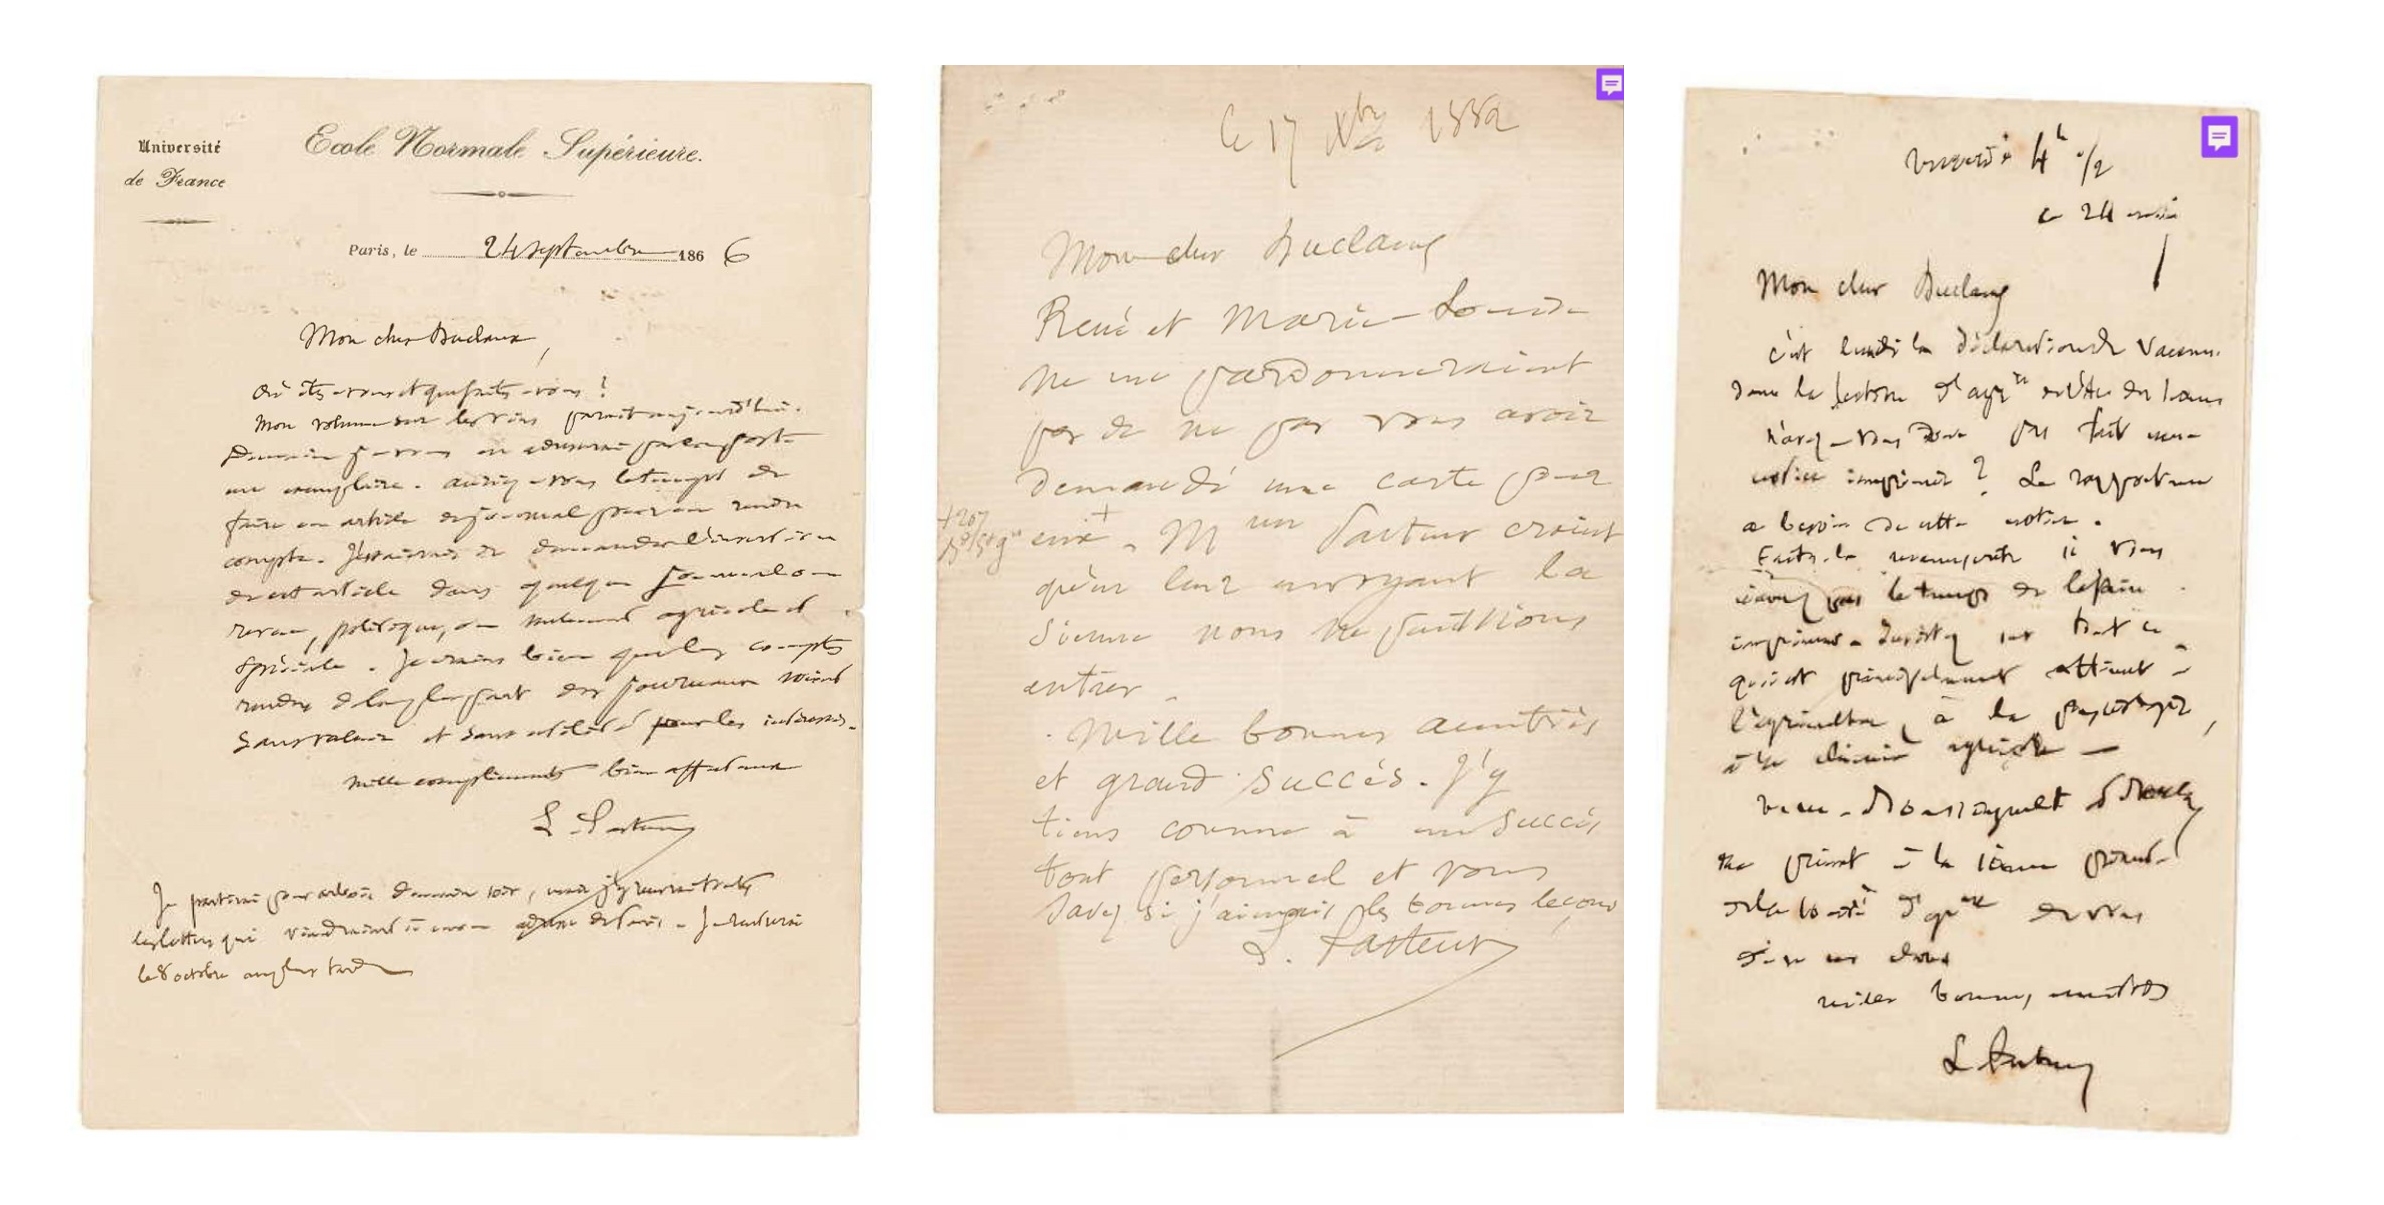 Université
de France
Ecole Normale Supérieure.
Paris, le 24 septembre 1866
Mon cher Duclaux,
Où êtes-vous et que faites-vous ?
Mon volume sur les vins paraît aujourd'hui.
Demain je vous en adresserai par la poste
un exemplaire. Auriez-vous le temps de
faire un article de journal pour en rendre
compte. J'essaierais de demander l'insertion
de cet article dans quelque journal ou
revue, politique, ou agricole et
spéciale. Je crains bien que les comptes
rendus de la plupart des journaux soient
sans valeur et sans utilité pour les intéressés.
Mille compliments bien affectueux
L. Pasteur
Je partirai pour Arbois demain soir, mais
les lettres qui viendraient à mon adresse de Paris. Je rentrerai
le 8 octobre au plus tard
Le 17 Xbre 1882
Mon cher Duclaux
René et Marie-Louise
ne me pardonneraient
pas de ne pas vous avoir
demandé une carte pour
eux. Mme Pasteur craint
qu'en leur envoyant la
sienne nous ne puissions
entrer.
Mille bonnes amitiés
et grand succès. J'y
tiens comme à un succès
tout personnel et vous
savez si j'aimais les bonnes leçons
L. Pasteur
4h 1/2
ce 24 mai
Mon cher Duclaux
C'est lundi la déclaration de vacance
dans la section d'
N'avez-vous donc pas fait une
notice imprimée ? Le rapporteur
a besoin de cette notice.
Faites-la manuscrite si vous
n'avez pas le temps de la faire
imprimer. Insistez sur tout ce
qui est principalement attinent à
l'agriculture, à la physiologie,
à la chimie agricole —
Boussingault
présent à la séance
de la
mille bonnes amitiés
L. Pasteur